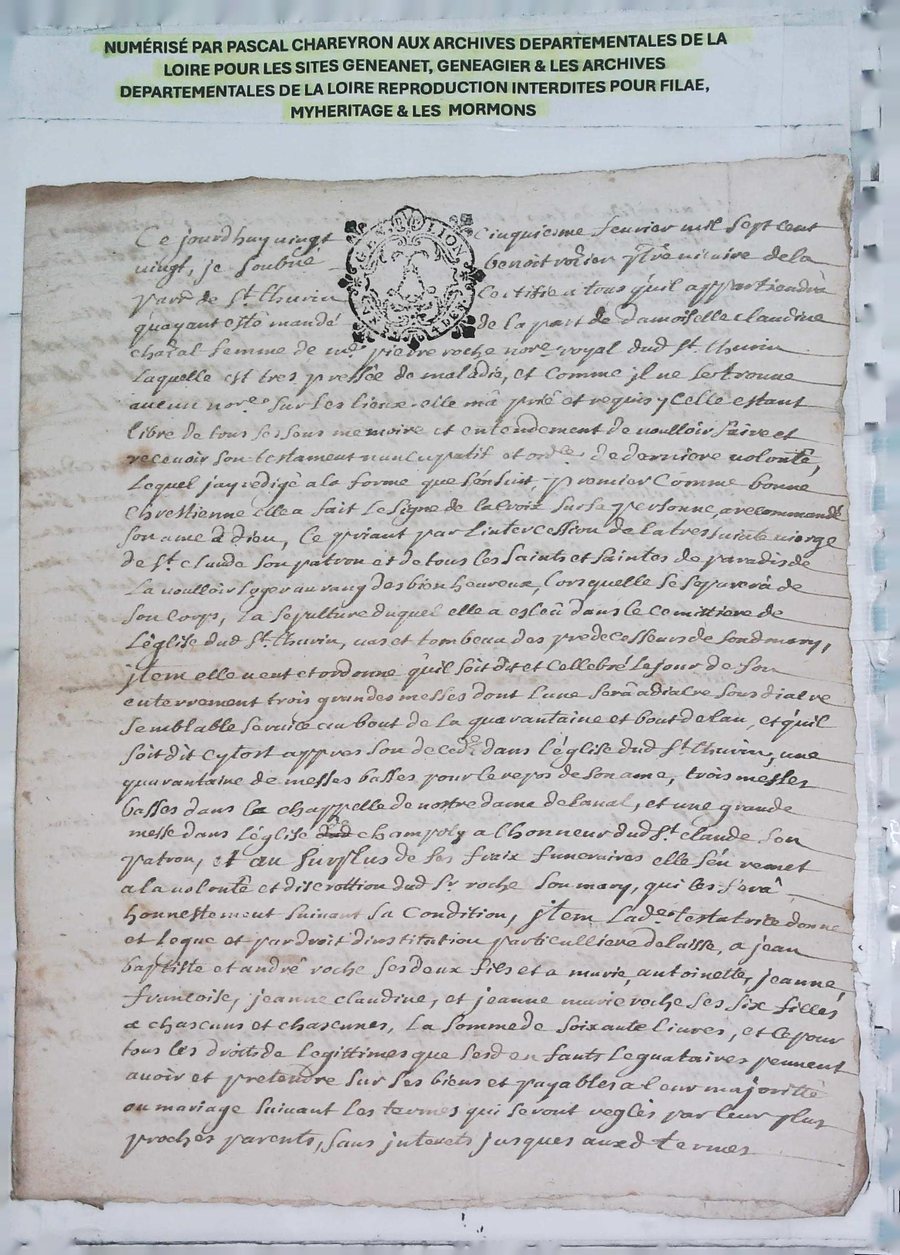 NUMÉRISÉ PAR PASCAL CHAREYRON AUX ARCHIVES DEPARTEMENTALES DE LA
LOIRE POUR LES SITES GENEANET, GENEAGIER & LES ARCHIVES
DEPARTEMENTALES DE LA LOIRE REPRODUCTION INTERDITES POUR FILAE,
MYHERITAGE & LES MORMONS
GEN DE LION
4 DEN
Ce jourdhuy vingt cinquiesme fevrier mil sept cent
vingt, je soubné benoit rozier ptre vicaire de la
parse de St. thurin Certifie a tous quil appartiendra
quayant esté mandé de la part de damoiselle claudine
chazal femme de me. pierre roche nore. royal dud St. thurin
laquelle est tres pressée de maladie, et comme jl ne se trouve
aucun nore. sur les lieux elle mâ prié et requis ycelle estant
libre de tous ses sens memoire et entendement de voulloir faire et
recevoir son testament nuncupatif et orde. de derniere volonté,
lequel jay redigé a la forme que sénsuit, premier Comme bonne
chrestienne elle a fait le signe de la croix sur sa personne, a recommandé
son ame à dieu, Ce priant par l'intercession de la tres sainte vierge
de St. claude son patron et de tous les saints et saintes de paradis de
la voulloir loger au rang des bien heureux, lorsquelle se separera de
son corps, la sepulture duquel elle a esleû dans le cemittiere de
l'église dud St. thurin, vas et tombeau des predecesseurs de sond mary,
jtem elle veut et ordonne quil soit dit et cellebré le jour de son
enterrement trois grandes messes dont lune serâ a diacre sous diacre
semblable service au bout de la quarantaine et bout de lan, et quil
soit dit cytost appres son decéds dans l'église dud St. thurin, une
quarantaine de messes basses pour le repos de son ame, trois messes
basses dans la chappelle de nostre dame de laval, et une grande
messe dans l'église de champoly a lhonneur dud St. claude son
patron, et au surplus de ses fraix funeraires elle sén remet
a la volonté et discrettion dud Sr. roche son mary, qui les ferâ
honnestement suivant sa Condition, jtem lade. testatrice donne
et legue et par droit dinstitution particulliere delaisse, a jean
baptiste et andré roche ses deux fils et a marie, antoinette, jeanne,
francoise, jeanne claudine, et jeanne marie roche ses six filles
a chascuns et chascunes, la somme de soixante livres, et ce pour
tous les droits de legittimes que sesd enfants leguataires peuvent
avoir et pretendre sur ses biens et payables a leur majorittè
ou mariage suivant les termes qui seront reglés par leur plus
proches parents, sans jnterets jusques auxd termes